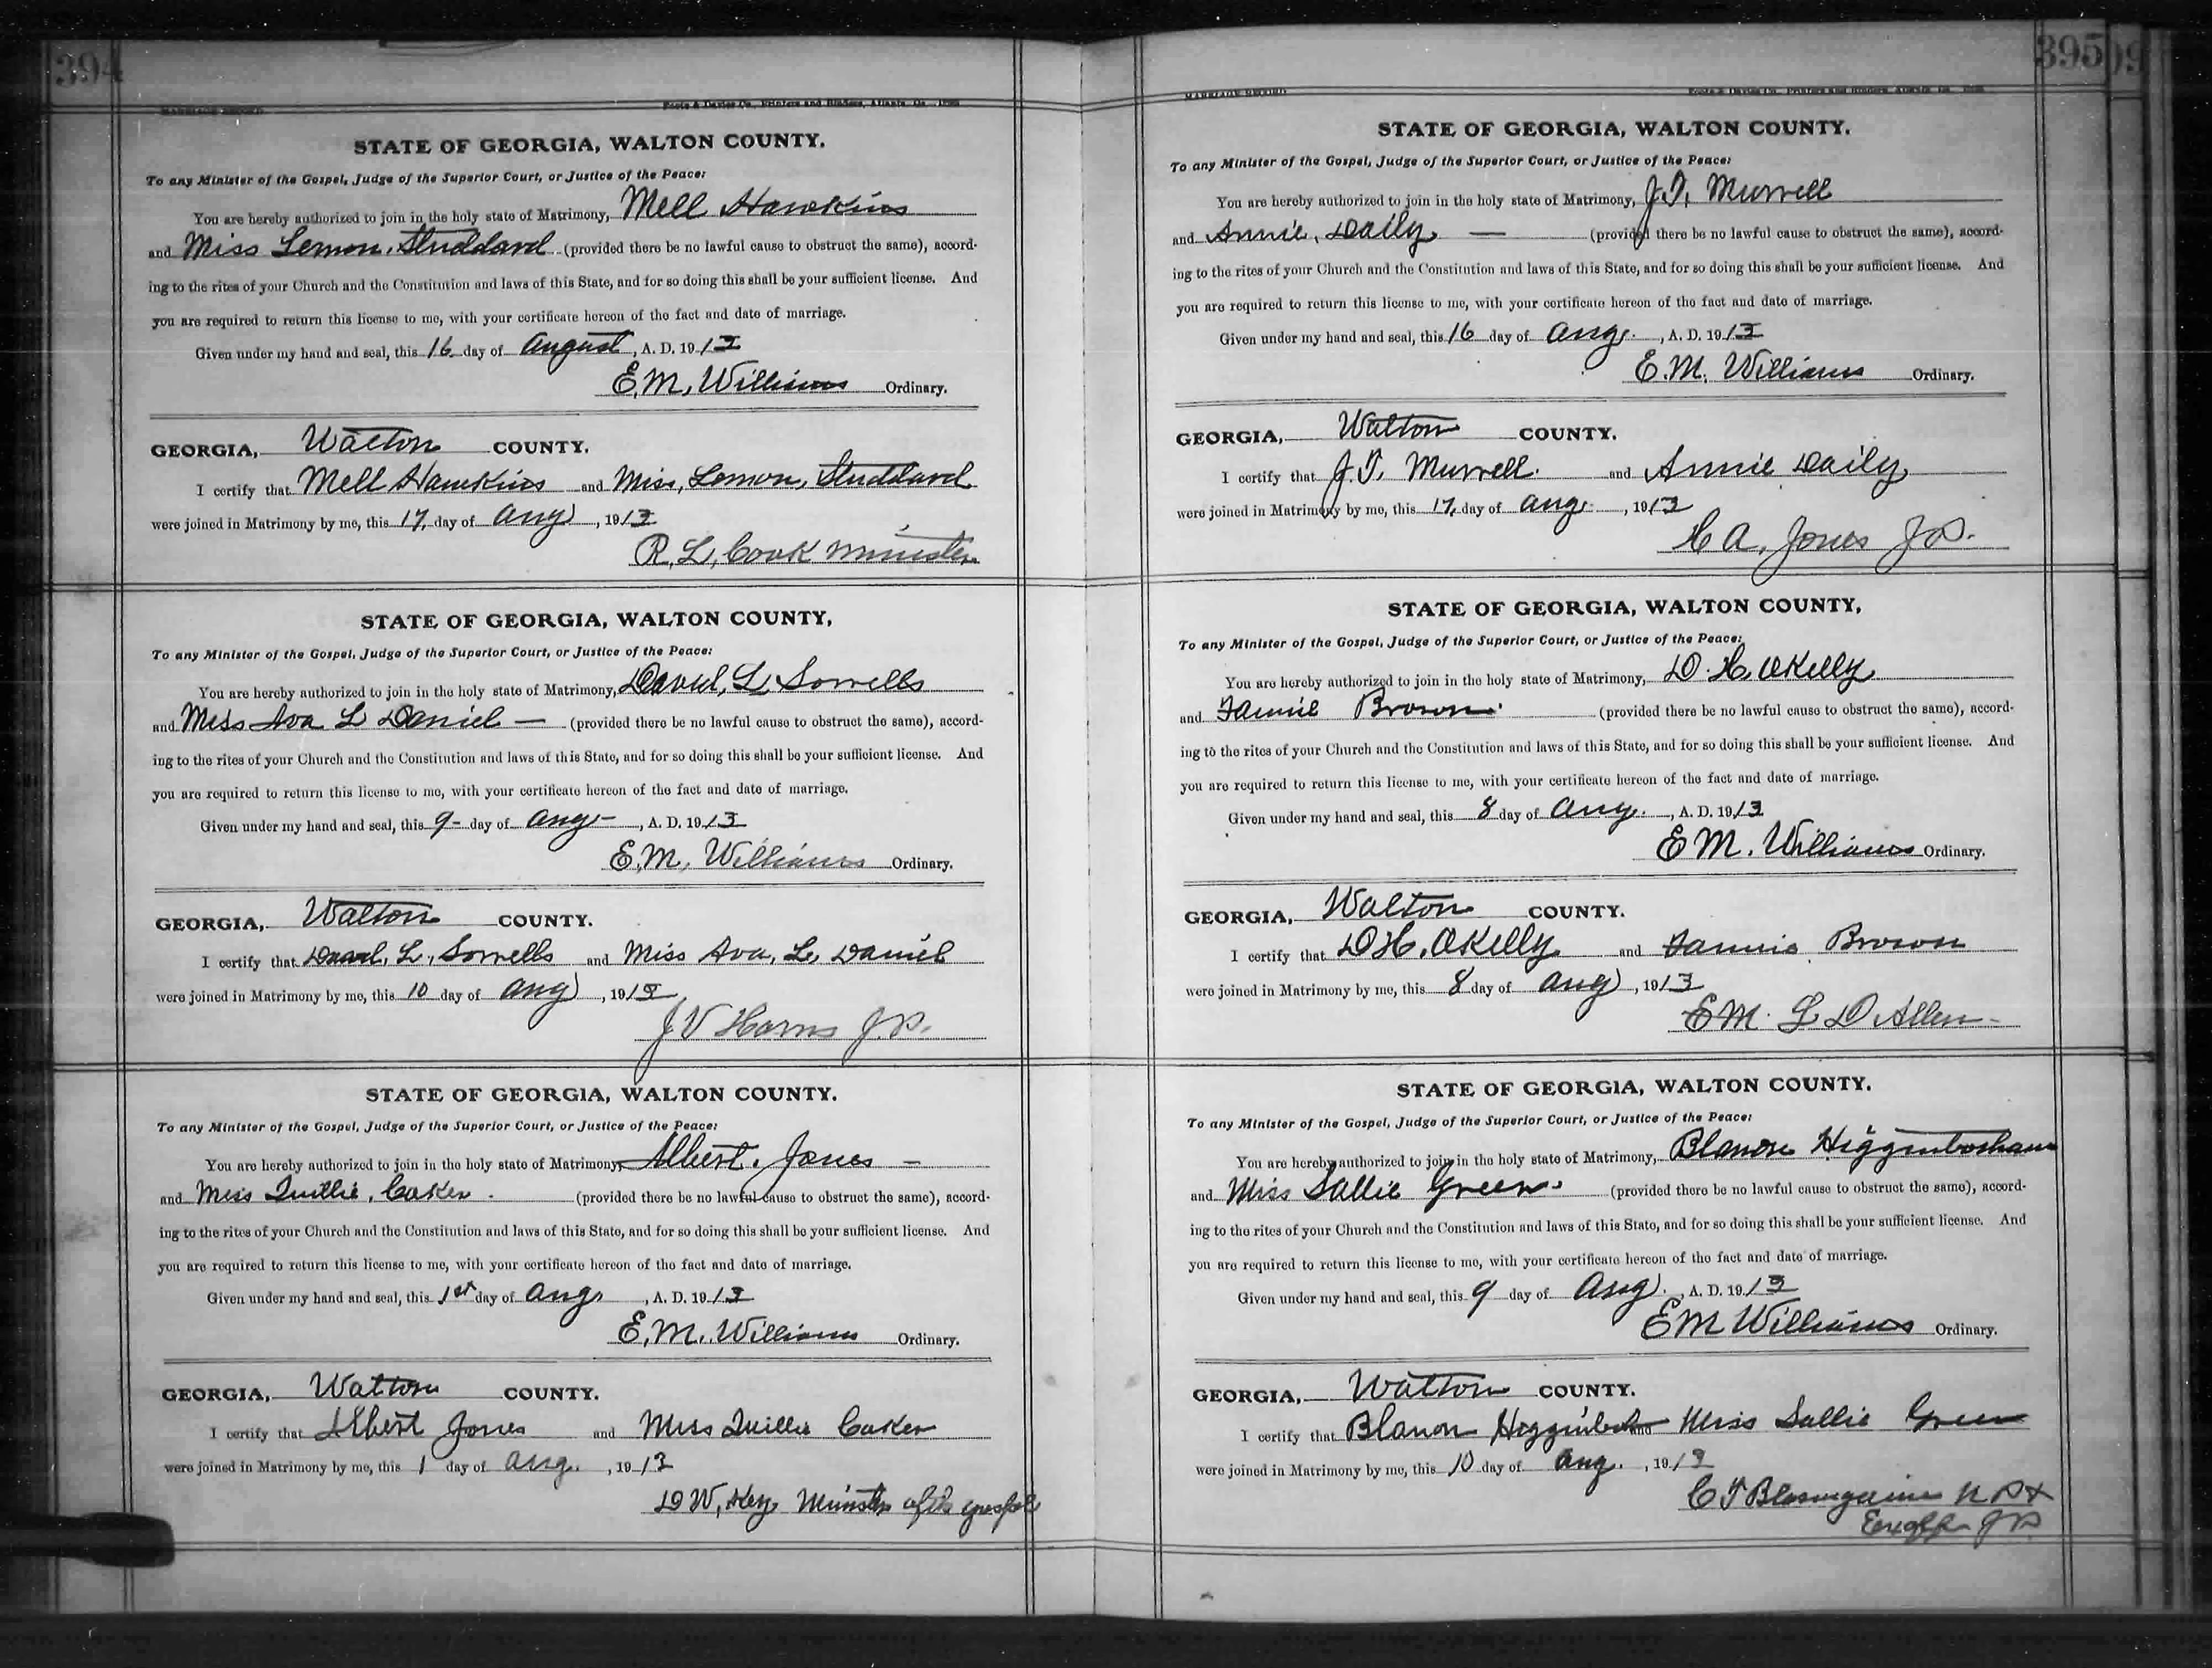 394
MARRIAGE RECORD
Foote & Davies Co., Printers and Binders, Atlanta, Ga.
STATE OF GEORGIA, WALTON COUNTY.
To any Minister of the Gospel, Judge of the Superior Court, or Justice of the Peace:
You are hereby authorized to join in the holy state of Matrimony, Mell Hawkins
and Miss Lemon, Studdard (provided there be no lawful cause to obstruct the same), accord-
ing to the rites of your Church and the Constitution and laws of this State, and for so doing this shall be your sufficient license. And
you are required to return this license to me, with your certificate hereon of the fact and date of marriage.
Given under my hand and seal, this 16 day of August, A. D. 1913
E. M. Williams Ordinary.
GEORGIA, Walton COUNTY.
I certify that Mell Hawkins and Miss, Lemon, Studdard
were joined in Matrimony by me, this 17, day of Aug, 1913
R. L. Cook Minister
STATE OF GEORGIA, WALTON COUNTY,
To any Minister of the Gospel, Judge of the Superior Court, or Justice of the Peace:
You are hereby authorized to join in the holy state of Matrimony, David, L. Sorrells
and Miss Ava L Daniel — (provided there be no lawful cause to obstruct the same), accord-
ing to the rites of your Church and the Constitution and laws of this State, and for so doing this shall be your sufficient license. And
you are required to return this license to me, with your certificate hereon of the fact and date of marriage.
Given under my hand and seal, this 9- day of Aug-, A. D. 1913
E. M. Williams Ordinary.
GEORGIA, Walton COUNTY.
I certify that David, L, Sorrells and Miss Ava, L, Daniel
were joined in Matrimony by me, this 10 day of Aug, 1913
J V Harris J.P.
STATE OF GEORGIA, WALTON COUNTY.
To any Minister of the Gospel, Judge of the Superior Court, or Justice of the Peace:
You are hereby authorized to join in the holy state of Matrimony, Albert. Jones —
and Miss Quillie, Caker. (provided there be no lawful cause to obstruct the same), accord-
ing to the rites of your Church and the Constitution and laws of this State, and for so doing this shall be your sufficient license. And
you are required to return this license to me, with your certificate hereon of the fact and date of marriage.
Given under my hand and seal, this 1st day of Aug, A. D. 1913
E. M. Williams Ordinary.
GEORGIA, Walton COUNTY.
I certify that Albert Jones and Miss Quillie Caker
were joined in Matrimony by me, this 1 day of Aug., 1913
D W, Key Minister of the gospel
395
MARRIAGE RECORD
Foote & Davies Co., Printers and Binders, Atlanta, Ga.
STATE OF GEORGIA, WALTON COUNTY.
To any Minister of the Gospel, Judge of the Superior Court, or Justice of the Peace:
You are hereby authorized to join in the holy state of Matrimony, J. T, Murrell
and Annie, Daily, — (provided there be no lawful cause to obstruct the same), accord-
ing to the rites of your Church and the Constitution and laws of this State, and for so doing this shall be your sufficient license. And
you are required to return this license to me, with your certificate hereon of the fact and date of marriage.
Given under my hand and seal, this 16 day of Aug., A. D. 1913
E. M. Williams Ordinary.
GEORGIA, Walton COUNTY.
I certify that J. T, Murrell. and Annie Daily,
were joined in Matrimony by me, this 17, day of Aug., 1913
H A, Jones J P.
STATE OF GEORGIA, WALTON COUNTY,
To any Minister of the Gospel, Judge of the Superior Court, or Justice of the Peace:
You are hereby authorized to join in the holy state of Matrimony, D. H, OKelly
and Fannie Brown. (provided there be no lawful cause to obstruct the same), accord-
ing to the rites of your Church and the Constitution and laws of this State, and for so doing this shall be your sufficient license. And
you are required to return this license to me, with your certificate hereon of the fact and date of marriage.
Given under my hand and seal, this 8 day of Aug., A. D. 1913
E M. Williams Ordinary.
GEORGIA, Walton COUNTY.
I certify that D H, OKelly and Fannie Brown
were joined in Matrimony by me, this 8 day of Aug, 1913
E M. L D Allen
STATE OF GEORGIA, WALTON COUNTY.
To any Minister of the Gospel, Judge of the Superior Court, or Justice of the Peace:
You are hereby authorized to join in the holy state of Matrimony, Blanon Higginbotham
and Miss Sallie Green. (provided there be no lawful cause to obstruct the same), accord-
ing to the rites of your Church and the Constitution and laws of this State, and for so doing this shall be your sufficient license. And
you are required to return this license to me, with your certificate hereon of the fact and date of marriage.
Given under my hand and seal, this 9 day of Aug., A. D. 1913
E M Williams Ordinary.
GEORGIA, Walton COUNTY.
I certify that Blanon Higginbot and Miss Sallie Green
were joined in Matrimony by me, this 10 day of Aug., 1913
C T Blasingame N P &
Exoff J P.